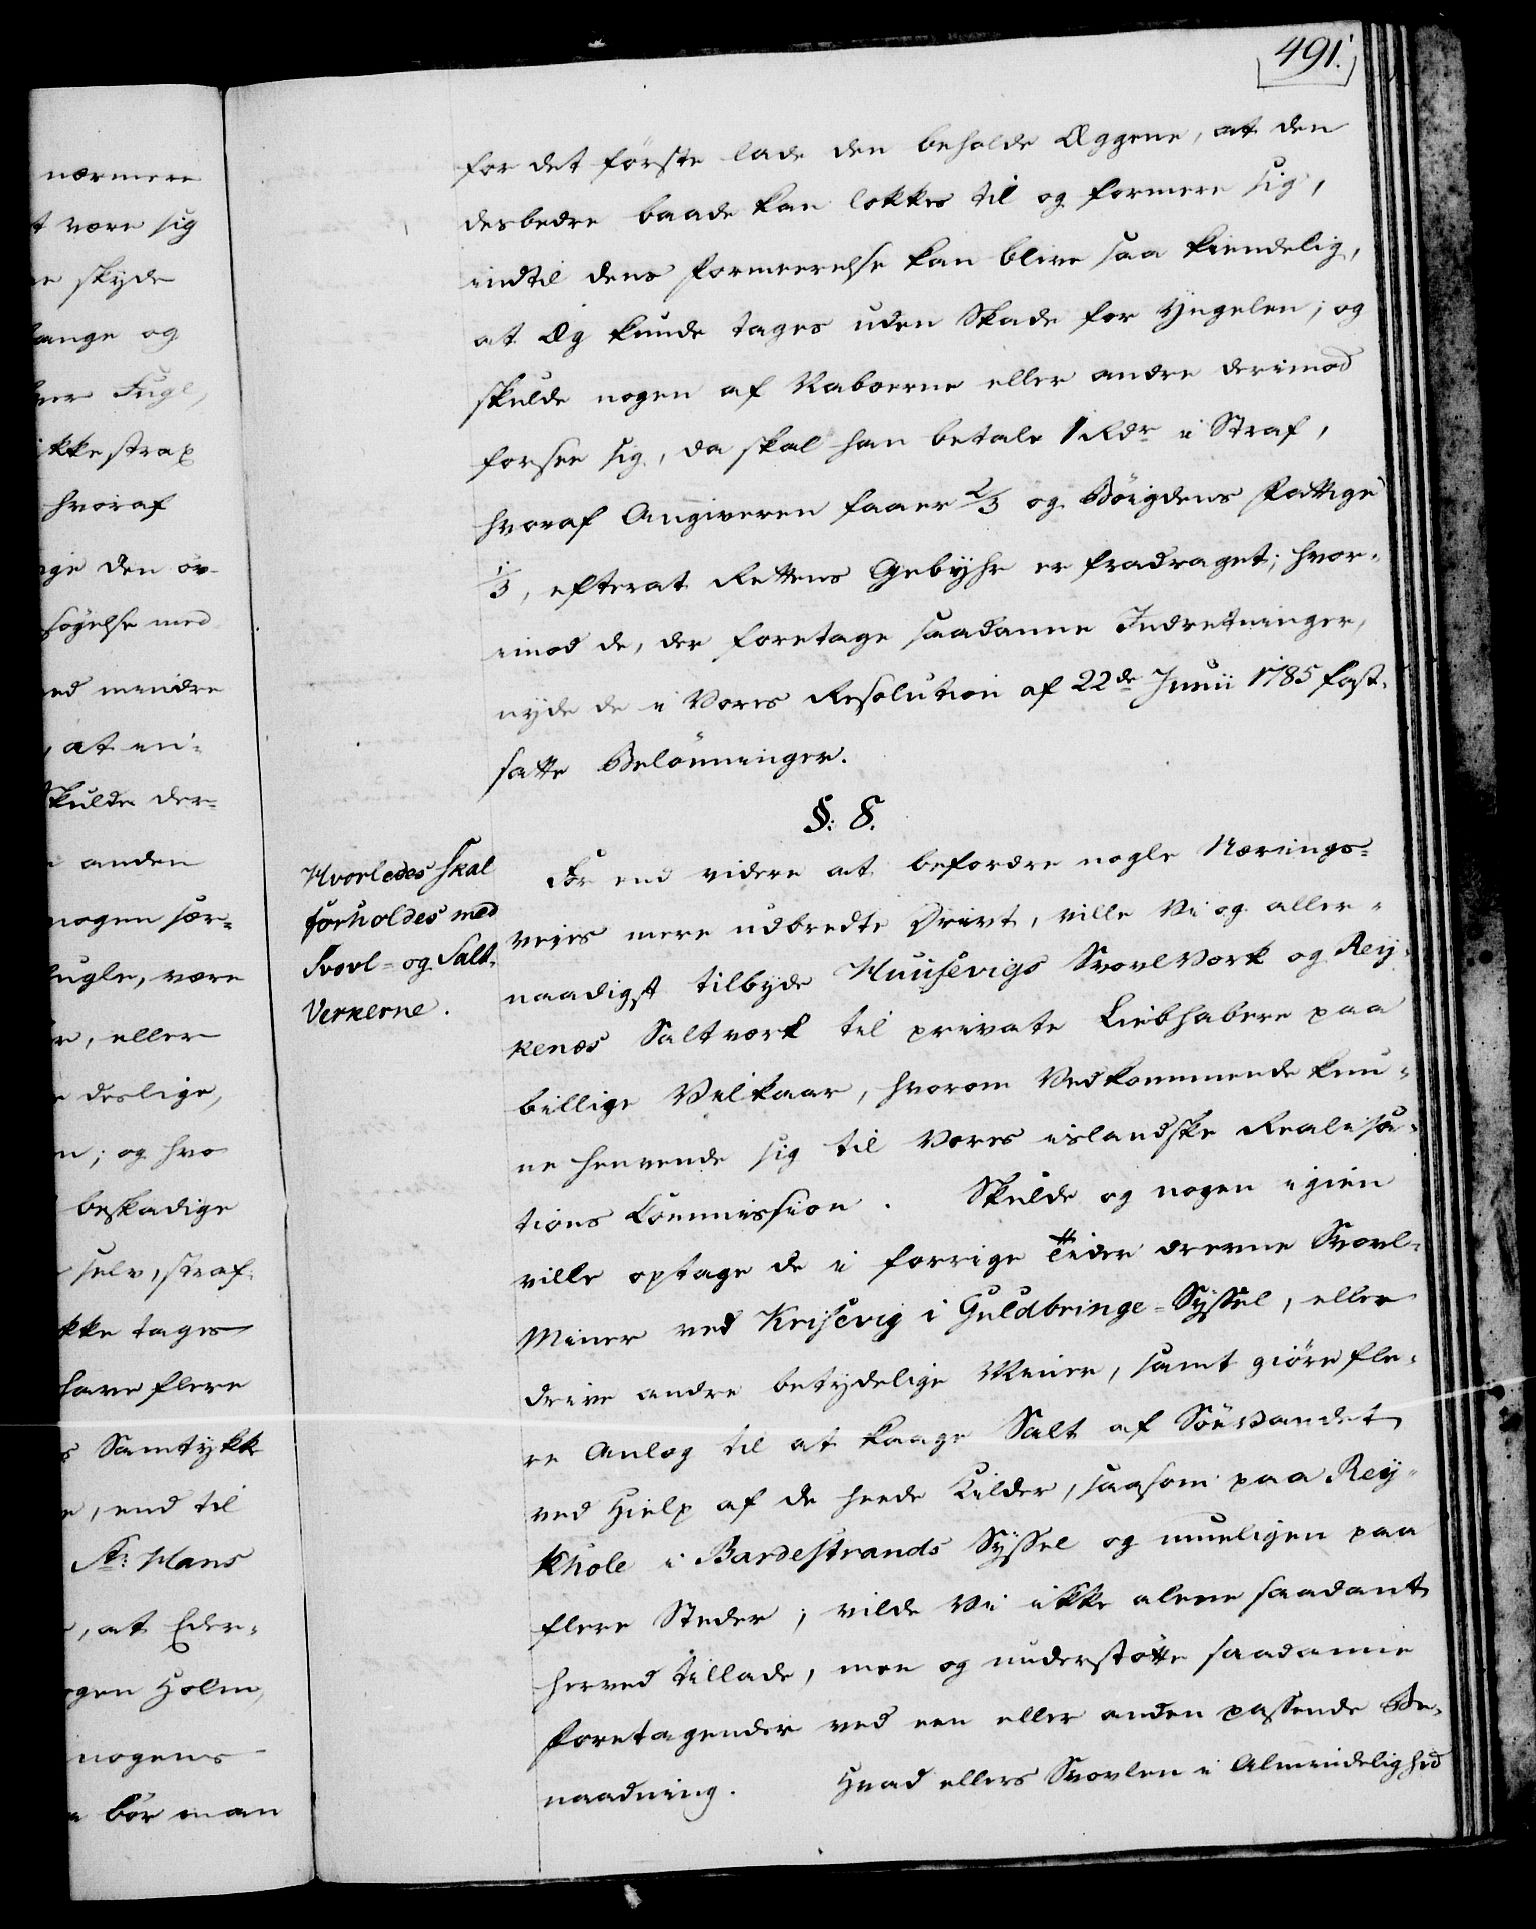 491.
nærmere
t være sig
e skyde
lange og
Fugl,
ikke strax
hvoraf
den öv-
søgelse med
ed mindre
, at en-
Skulde der-
anden
nogen sær-
fugle, være
r, eller
deslige,
n; og hvo
beskadige
selv, straf-
kke tages
have flere
s Samtykke
e, end til
St: Hans
, at Eder-
gen Holm,
nogens
bör man
for det förste lade den beholde Æggene, at den
desbedre baade kan lokkes til og formere sig,
indtil dens Formeerelse kan blive saa kiendelig,
at Æg kunde tages uden Skade for Yngelen; og
skulde nogen af Naboerne eller andre derimod
forsee sig, da skal han betale 1 Rdr i Straf,
hvoraf Angiveren faaer 2/3 og Böigdens Fattige
1/3, efterat Rettens Gebyhr er fradraget; hvor-
imod de, der foretage saadanne Indretninger,
nyde de i Vores Resolution af 22de Junii 1785 fast-
satte Belönninger.
§: 8.
Hvorledes skal
forholdes med
Svovl- og Salt-
Verkerne.
For end videre at befordre nogle Nærings-
veies mere udbredte Drivt, ville Vi og aller-
naadigst tilbyde Huusevigs Svovelværk og Rey-
kenæs Saltværk til private Liebhabere paa
billige Vilkaar, hvorom Vedkommende kun-
ne henvende sig til Vores islandske Realisa-
tions Commission. Skulde og nogen igien
ville optage de i forrige Tider drevne Svovl-
Miner ved Krisevig i Guldbringe-Syssel, eller
drive andre betydelige Miner, samt giöre fle-
re Anlæg til at kaage Salt af Söevandet
ved Hielp af de heede Kilder, saasom paa Rey-
khole i Bardestrands Syssel og mueligen paa
flere Steder; vilde Vi ikke alene saadant
herved tillade, men og understötte saadanne
Foretagender ved een eller anden passende Be-
naadning. Hvad ellers Svovlen i Almindelighed